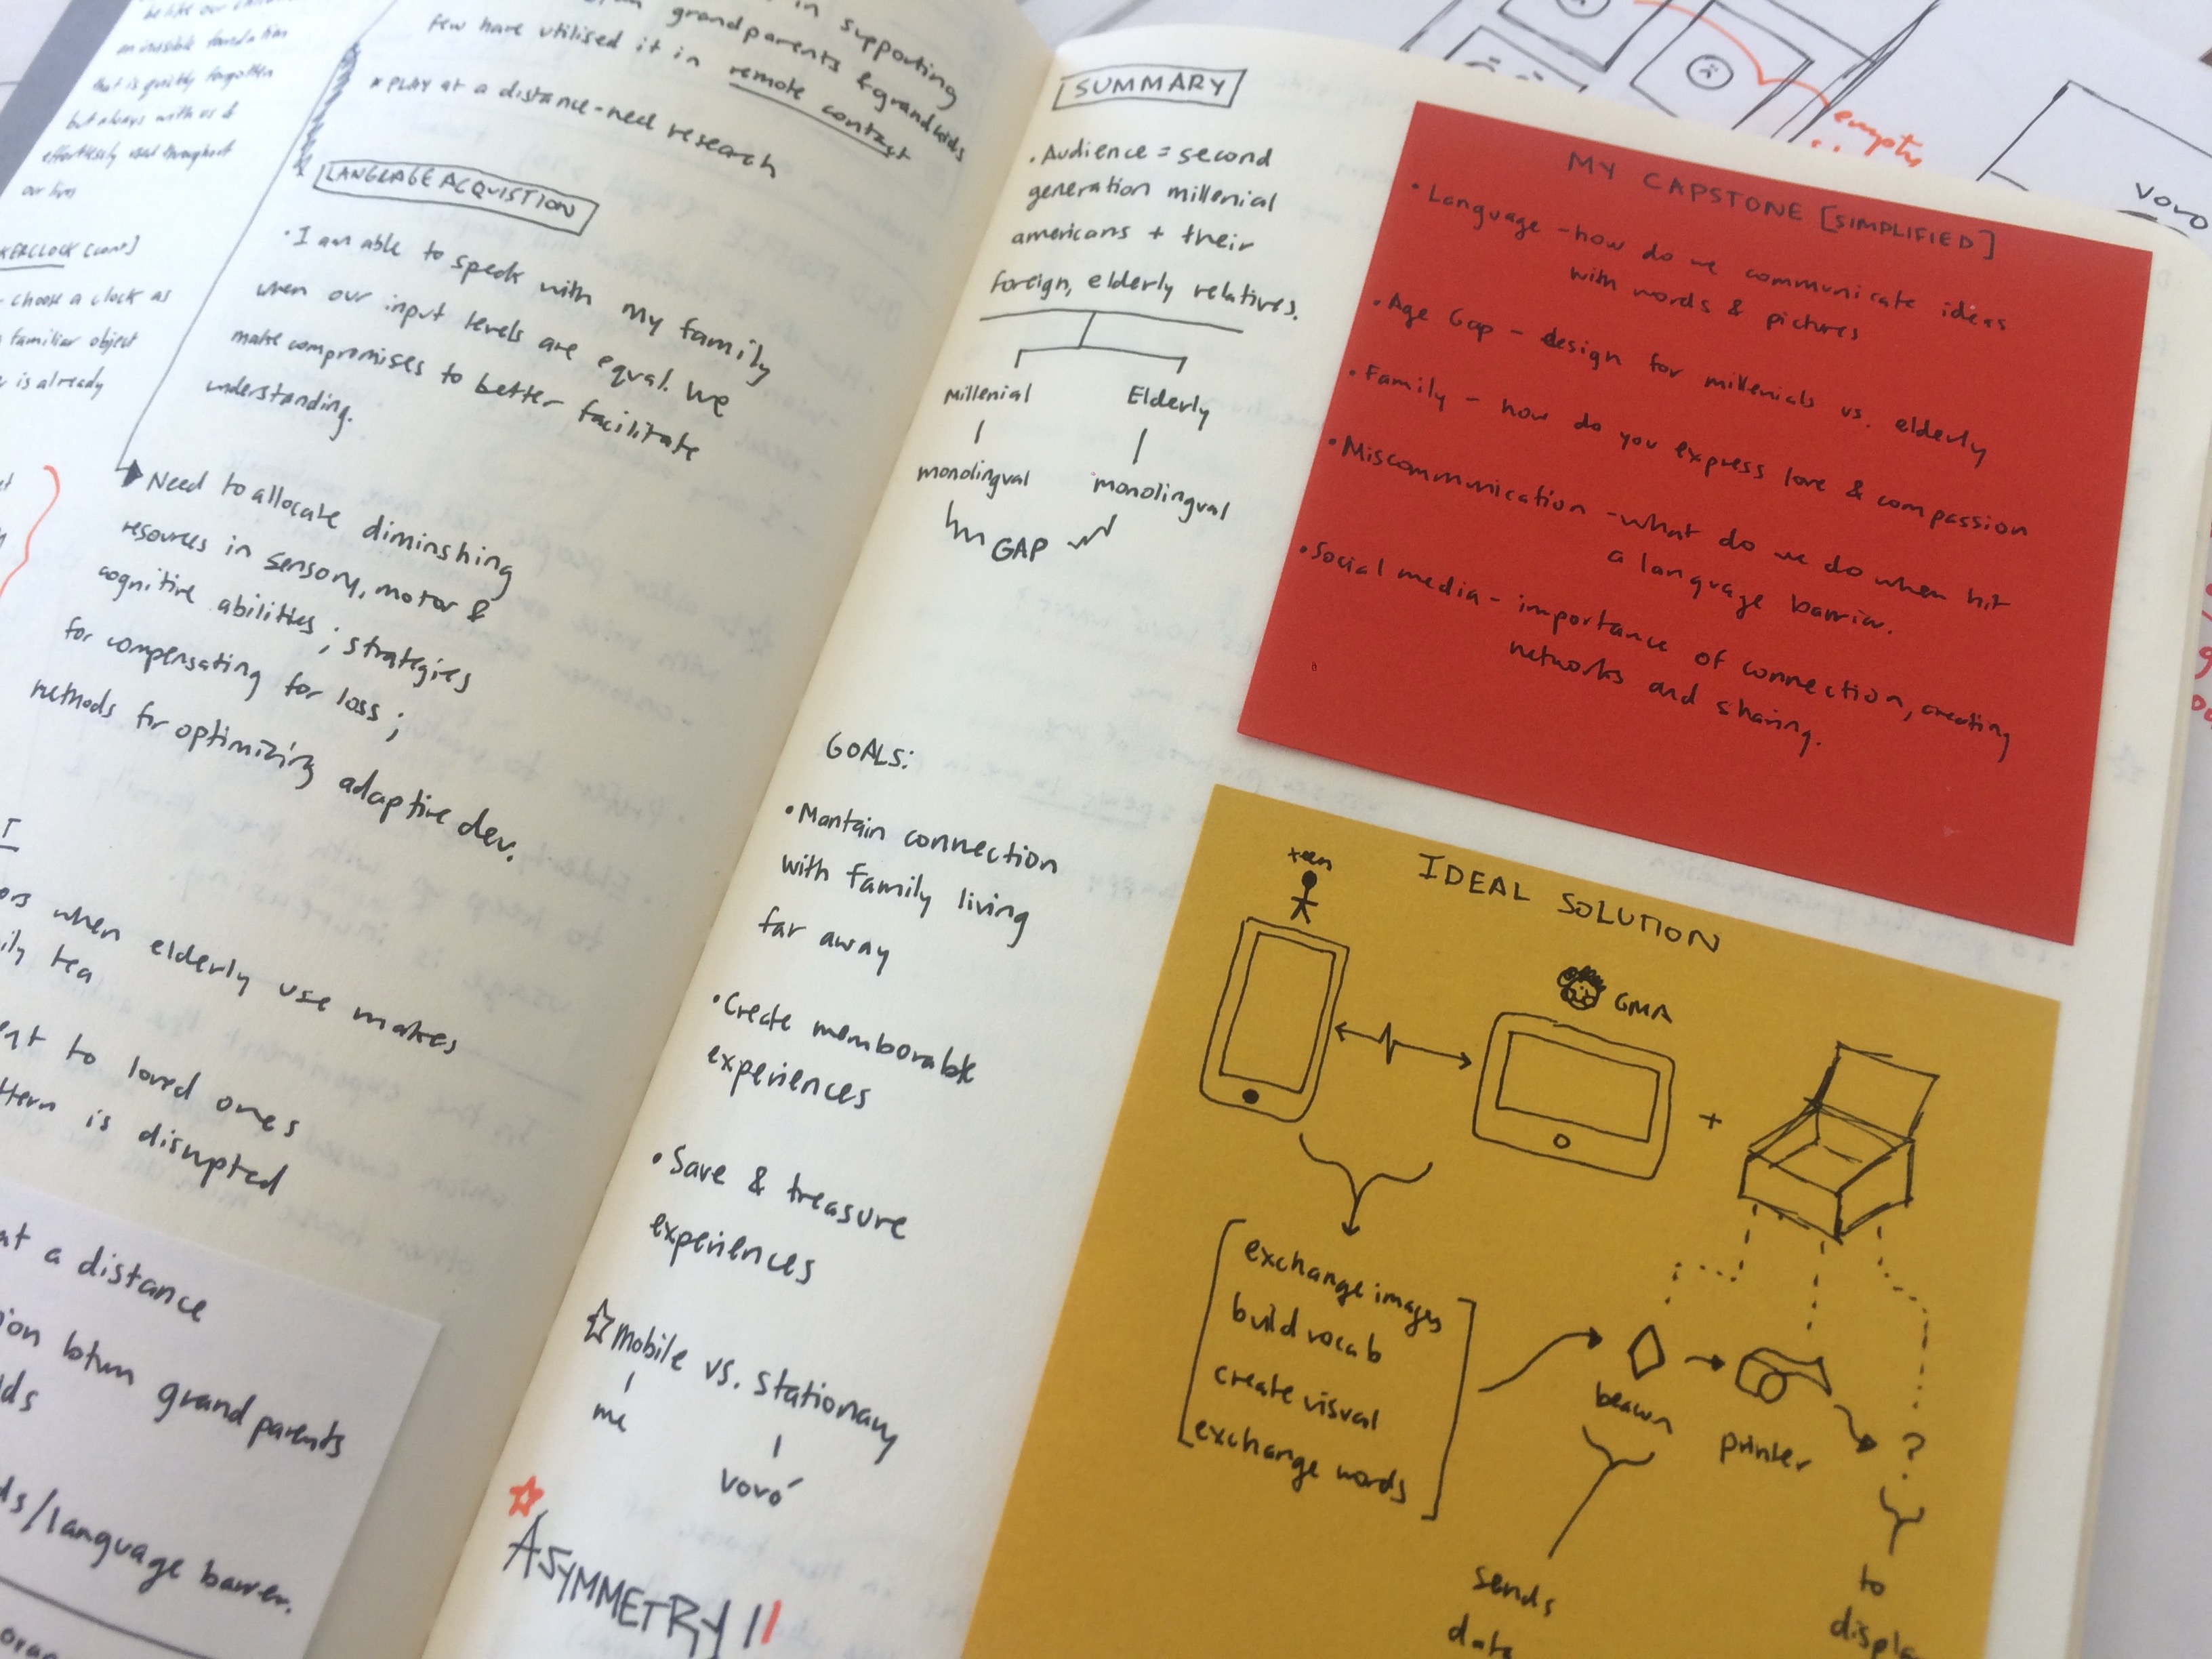 an invisible foundation
that is quietly forgotten
but always with us &
effortlessly used throughout
our lives
choose a clock as
familiar object
is already
in supporting
grandparents & grandkids
few have utilised it in remote contact
* PLAY at a distance - need research
LANGUAGE ACQUISTION
• I am able to speak with my family
when our input levels are equal. We
make compromises to better facilitate
understanding.
Need to allocate diminshing
resources in sensory, motor &
cognitive abilities; strategies
for compensating for loss;
methods for optimizing adaptive dev.
when elderly use makes
tea
to loved ones
is disrupted
at a distance
btwn grandparents
/language barrier.
SUMMARY
• Audience = second
generation millenial
americans + their
foreign, elderly relatives.
Millenial Elderly
monolingual monolingual
GAP
GOALS:
• Mantain connection
with family living
far away
• Create memborable
experiences
• Save & treasure
experiences
Mobile vs. stationary
me
vovó
ASYMMETRY!!
MY CAPSTONE [SIMPLIFIED]
• Language - how do we communicate ideas
with words & pictures
• Age Gap - design for millenials vs. elderly
• Family - how do you express love & compassion
• Miscommunication - what do we do when hit
a language barrier.
• Social media - importance of connection, creating
networks and sharing.
IDEAL SOLUTION
teen
GMA
+
exchange images
build vocab
create visual
exchange words
printer
?
sends
data
to
empty
vovo